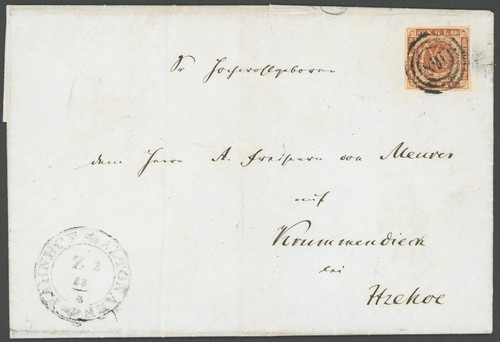 Sr Hochwohlgeboren
dem Herrn A. Freiherrn von Meurer
auf
Krummendieck
bei
Itzehoe
Z 2
22
4